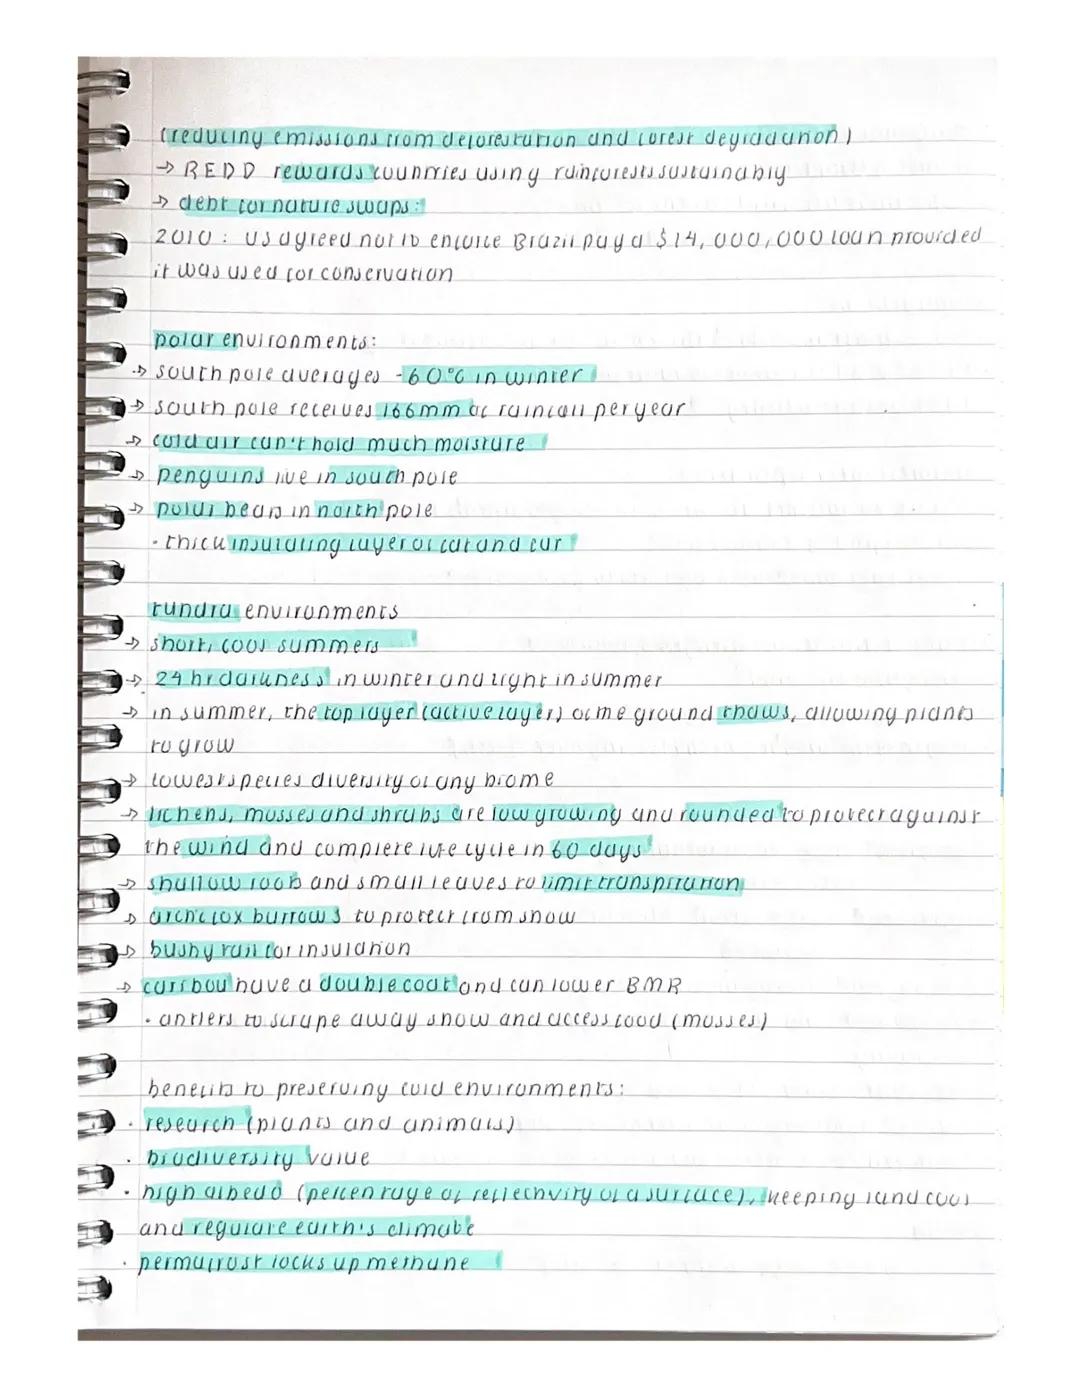 (reducing emissions from deforestation and forest degradation)
→ REDD rewards countries using rainforests sustainably
→ debt for nature swaps:
2010: US agreed not to enforce Brazil pay a $14,000,000 loan provided
it was used for conservation
polar environments:
→ south pole averages -60°C in winter
→ south pole receives 166mm of rainfall per year
→ cold air can't hold much moisture
→ penguins live in south pole
→ polar bears in north pole
· thick insulating layer of fat and fur
tundra environments
→ short, cool summers
→ 24 hr darkness in winter and light in summer
→ in summer, the top layer (active layer) of the ground thaws, allowing plants
to grow
→ lowest species diversity of any biome
→ lichens, mosses and shrubs are low growing and rounded to protect against
the wind and complete life cycle in 60 days
→ shallow roots and small leaves to limit transpiration
→ arctic fox burrows to protect from snow
→ bushy tail for insulation
→ caribou have a double coat and can lower BMR
· antlers to scrape away snow and access food (mosses)
benefits to preserving cold environments:
· research (plants and animals)
· biodiversity value
· high albedo (percentage of reflectivity of a surface), keeping land cool
and regulate earth's climate
· permafrost locks up methane